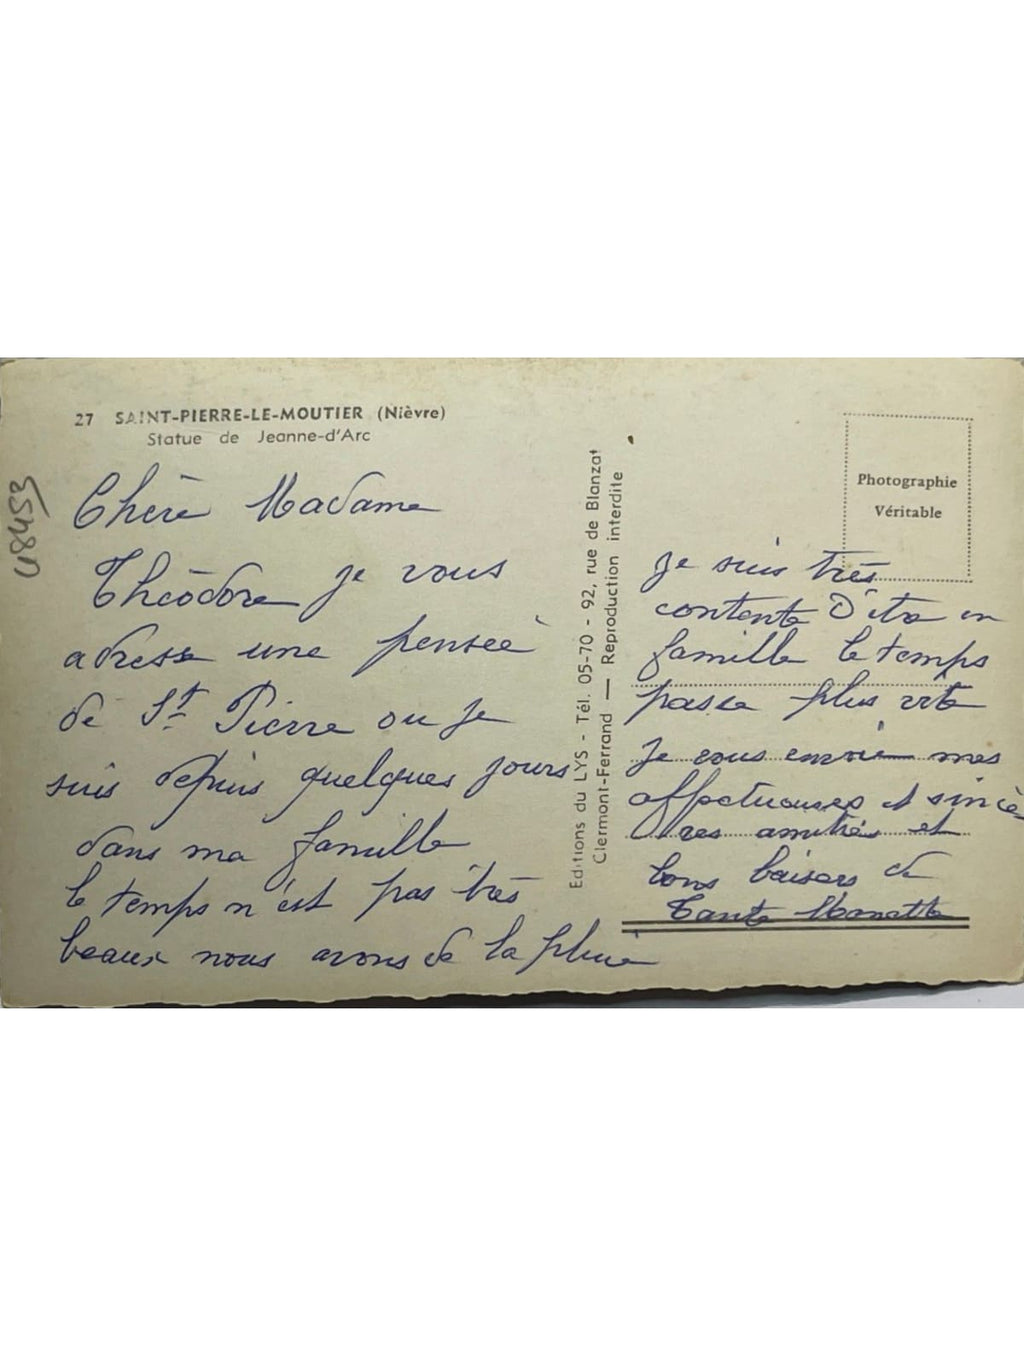 27 SAINT-PIERRE-LE-MOUTIER (Nièvre)
Statue de Jeanne-d'Arc
48453
Chère Madame
Théodore je vous
adresse une penseé
de St Pierre ou je
suis depuis quelques jours
dans ma famille
le temps n'est pas très
beaux nous avons de la pluie
Editions du LYS - Tél. 05-70 - 92, rue de Blanzat
Clermont-Ferrand — Reproduction interdite
Photographie
Véritable
je suis très
contente d'etre en
famille le temps
passe plus vite
je vous envoie mes
affectueuses et sincè
res amitiés et
bons baisers de
Tante